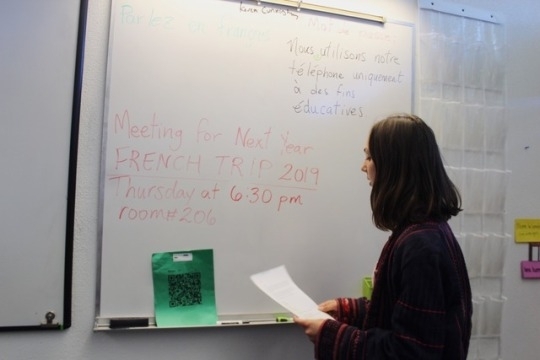 Parlez en français
Nous utilisons notre
téléphone uniquement
à des fins
éducatives
Meeting for Next Year
FRENCH TRIP 2019
Thursday at 6:30 pm
room#206